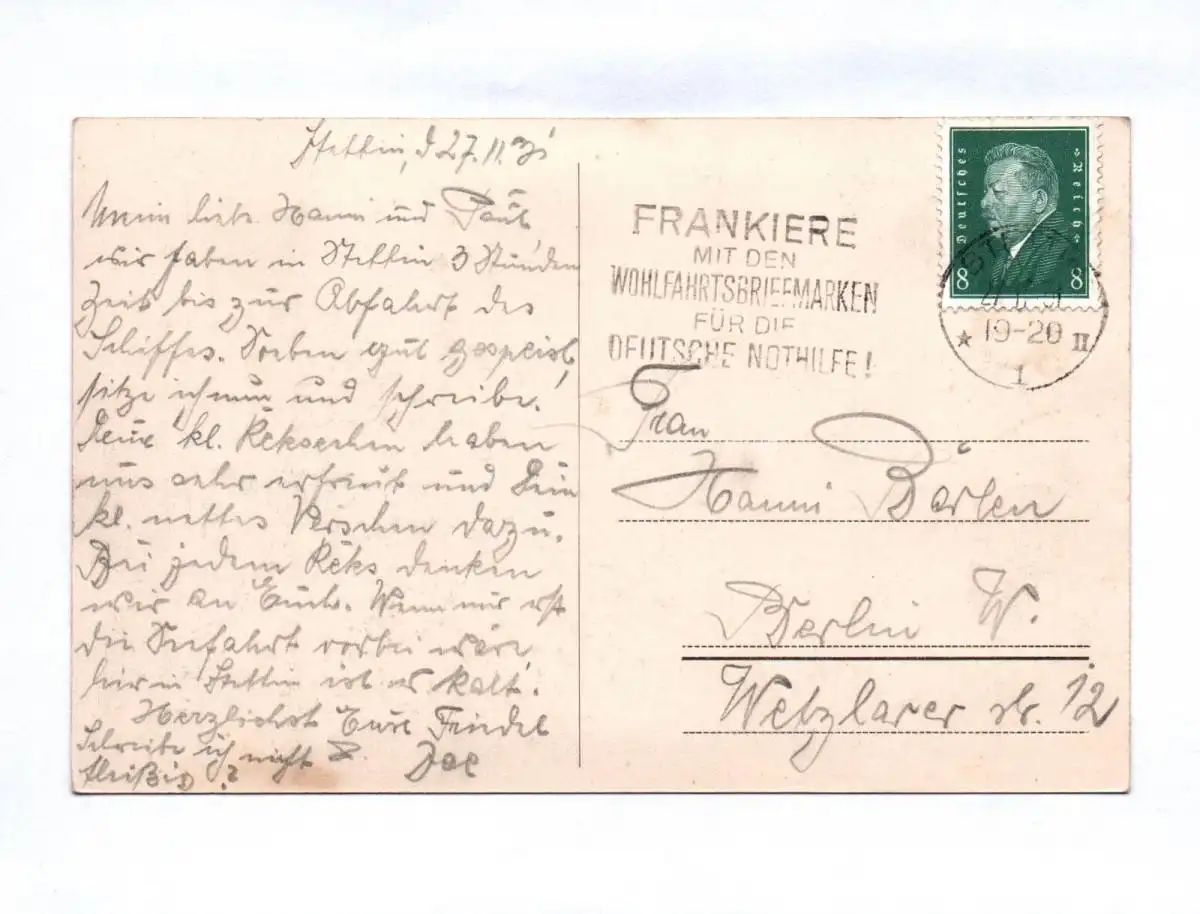 Stettin, d 27.11.31
Mein liebe Hanni und Paul
wir haben in Stettin 3 Stunden
Zeit bis zur Abfahrt des
Schiffes. Soeben gut gespeist,
sitze ich nun und schreibe.
Deine kl. Kekschen haben
uns sehr erfreut und Dein
kl. nettes Verschen dazu.
Bei jedem Keks denken
wir an Euch. Wenn nur erst
die Seefahrt vorbei wäre
hier in Stettin ist es kalt.
Herzlichst Eure
Schreibe ich nicht
fleißig?
FRANKIERE
MIT DEN
WOHLFAHRTSBRIEFMARKEN
FÜR DIE
DEUTSCHE NOTHILFE!
Deutsches Reich
8 8
19-20 II
1
Frau
Hanni
Berlin W.
Wetzlarer str. 12